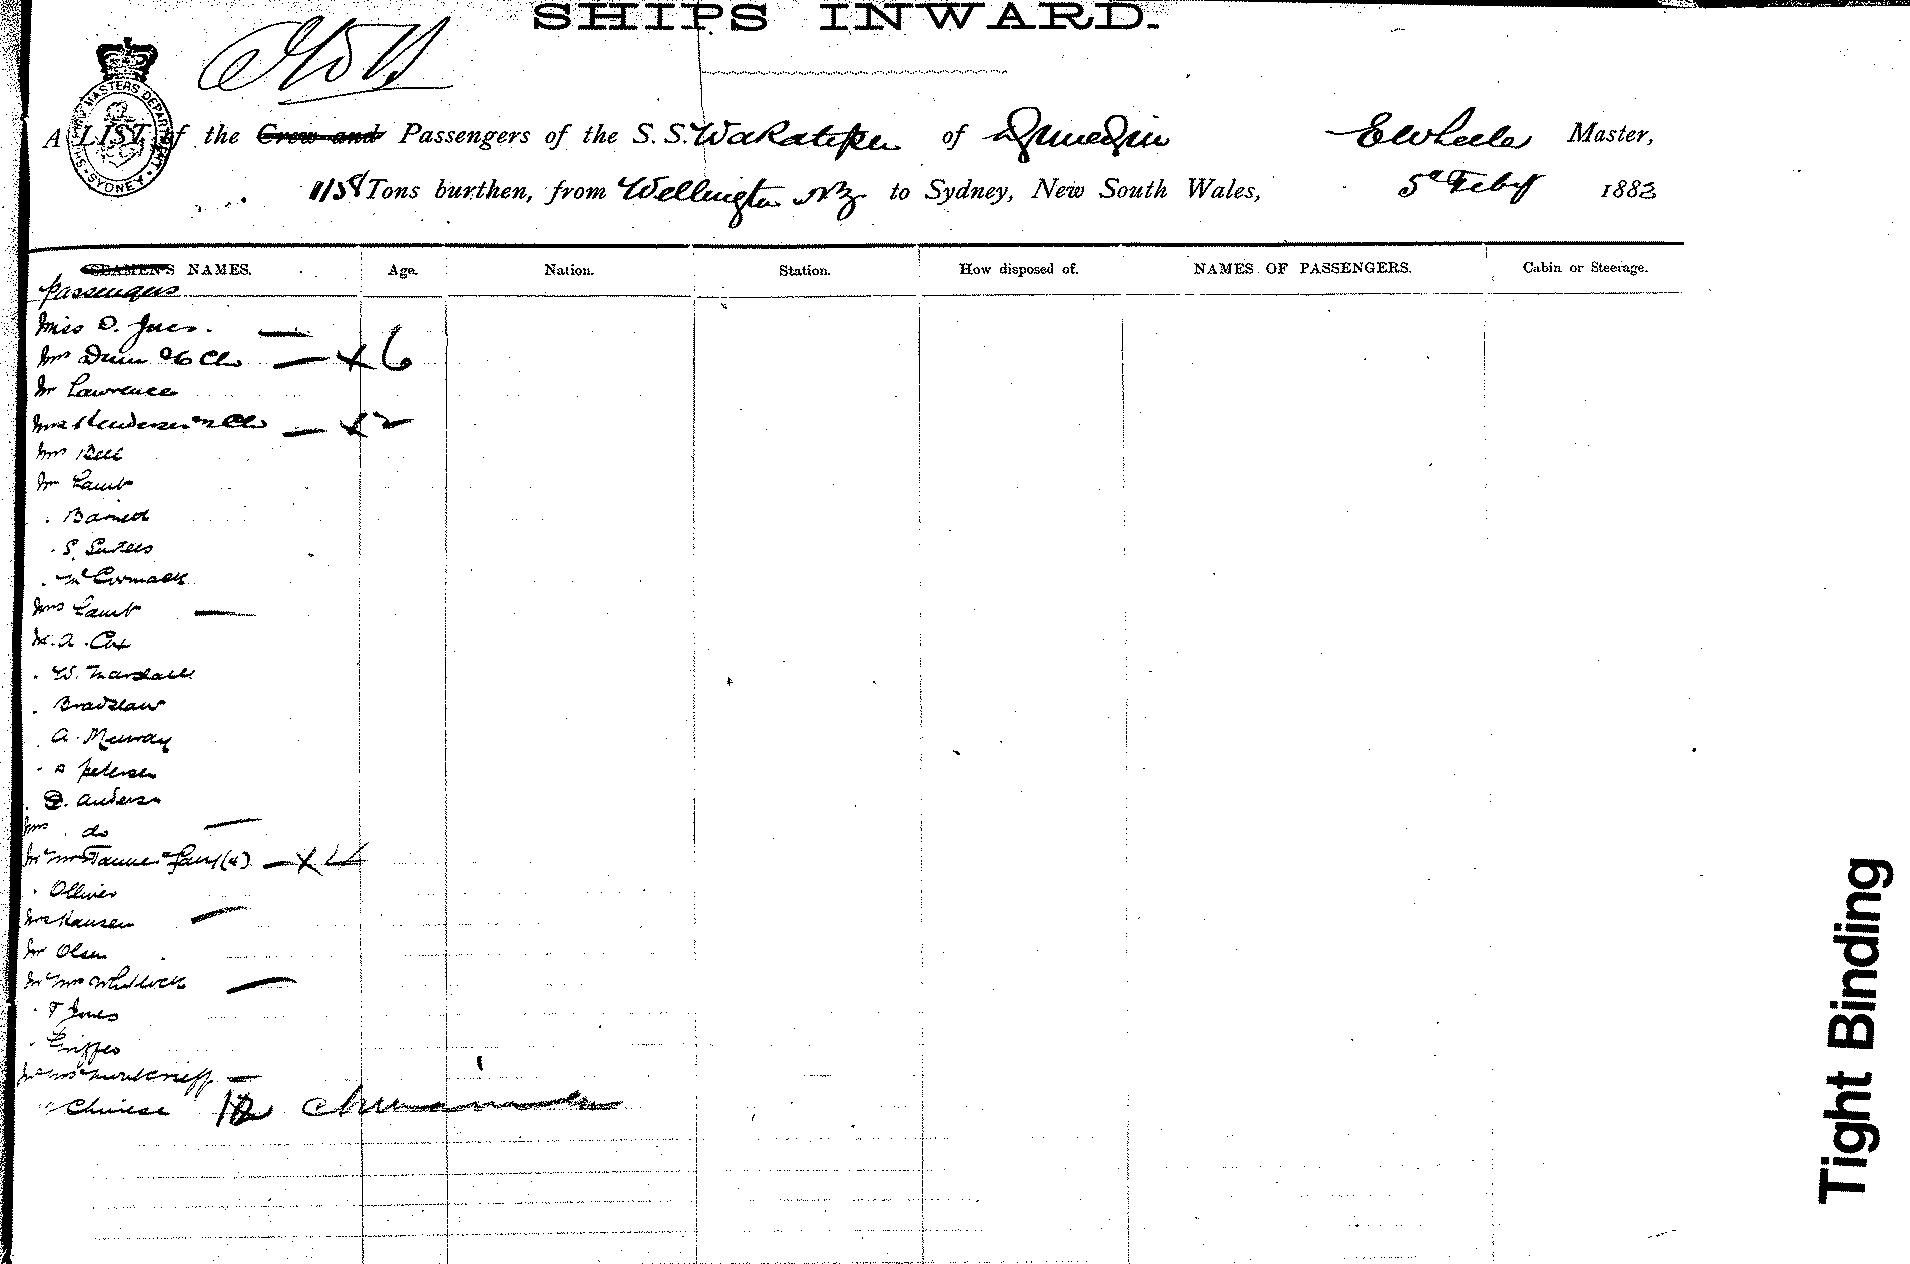 SHIPS INWARD.
SHIPPING MASTERS DEPARTMENT SYDNEY
A LIST of the Crew and Passengers of the S.S. Wakatipu of Dunedin E Wheeler Master,
1158 Tons burthen, from Wellington NZ to Sydney, New South Wales, 5th Feby 1883
SEAMEN'S NAMES. Age. Nation. Station. How disposed of. NAMES OF PASSENGERS. Cabin or Steerage.
Passengers
Miss D.
Mrs Dunn & 6 Ch — x 6
Mr Lawrence
Mrs Henderson 2 Ch — x 2
Mrs Bell
Mr Lamb
. Barnett
. S.
. McCormack
Mrs Lamb —
Mr. A. Cox
. W. Marshall
. Bradshaw
. A. Murray
. Petersen
. Anderson
Mrs . do —
Mr & Mrs Tanner & famy (4) — x 4
. Olliver
Mrs Hansen —
Mr Olsen
Mr & Mrs Whitlock —
. T Jones
.
Mr & Mrs —
" Chinese Chinamen
Tight Binding